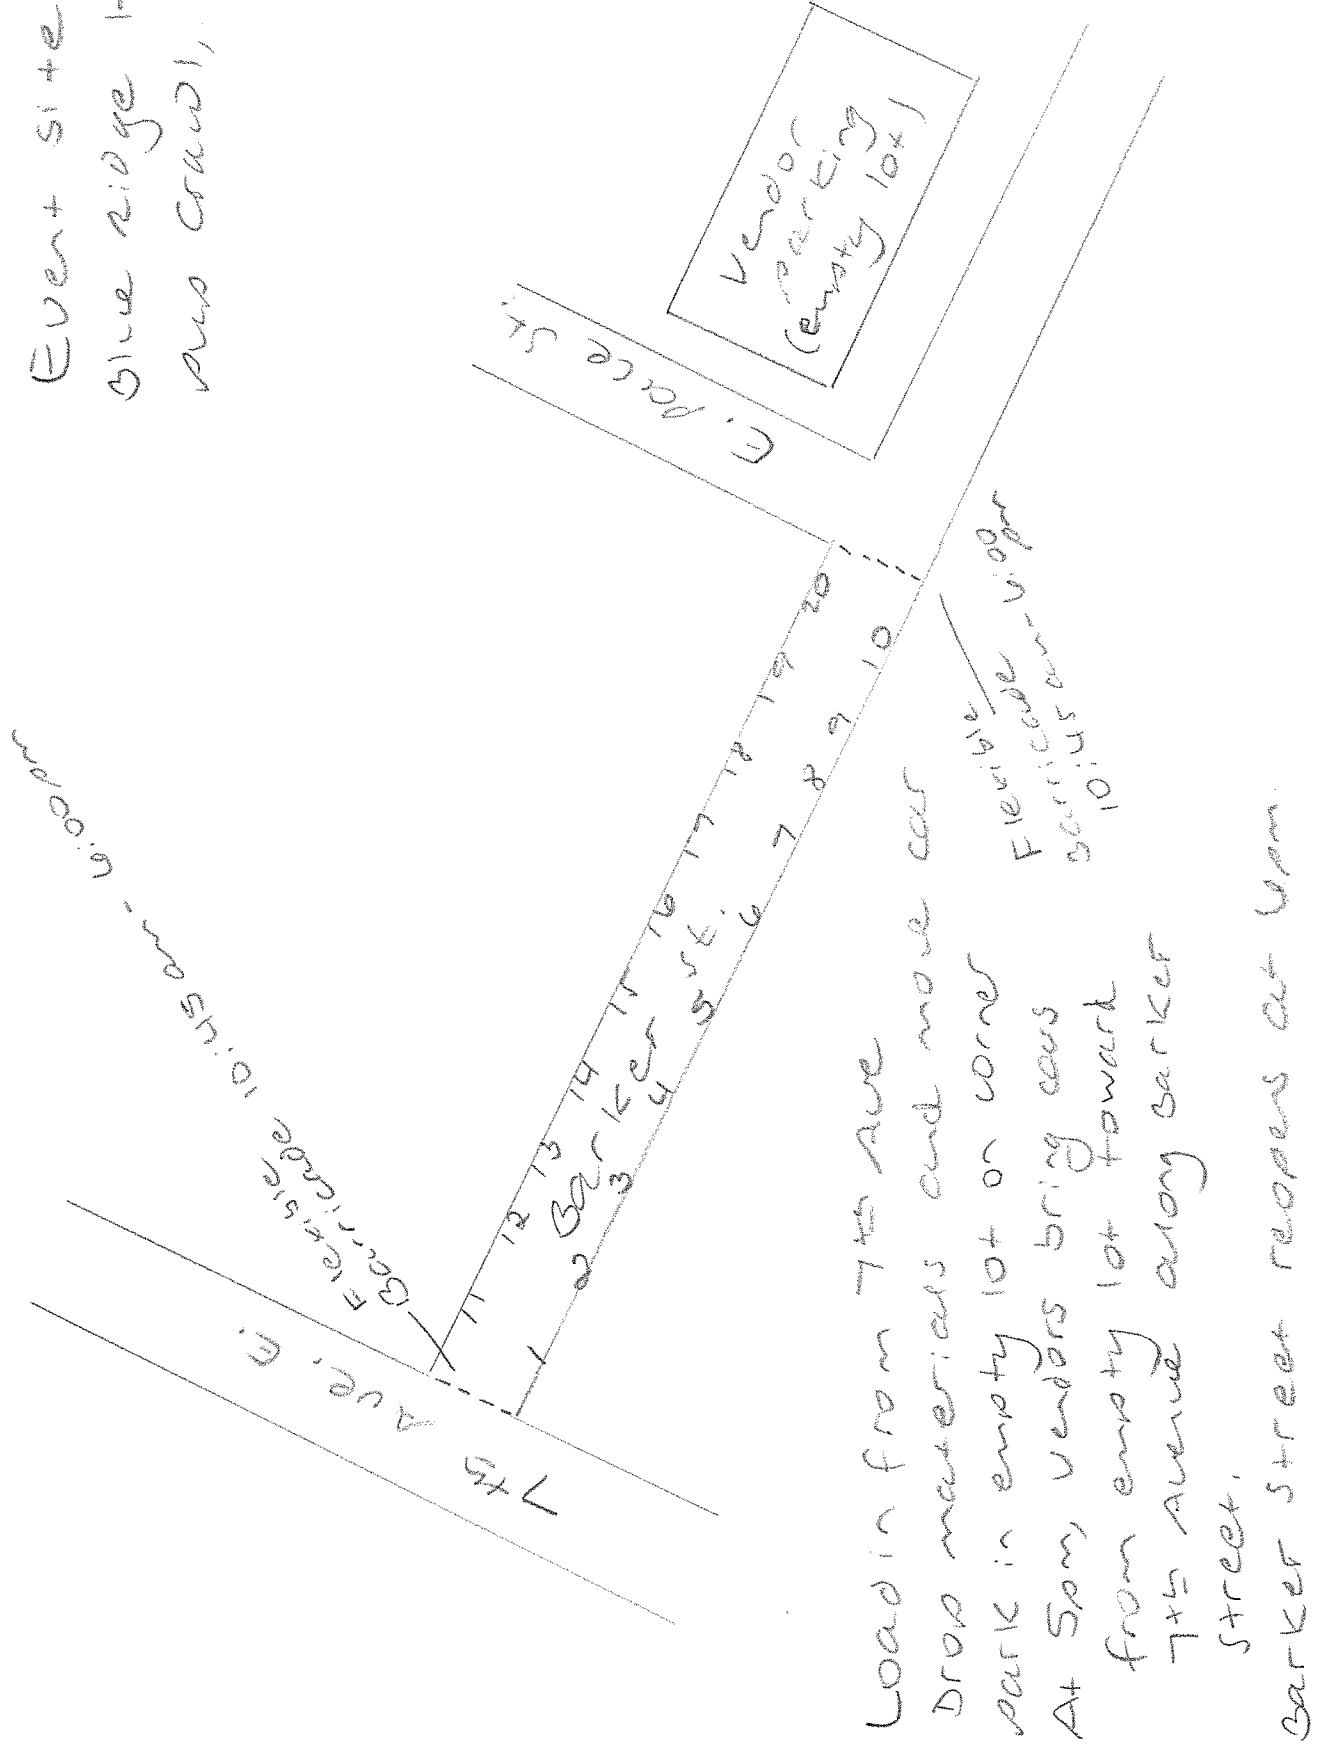 Event site
Blue Ridge H
pup crawl,
Vendor
parking
(empty lot)
E. pace St.
Flexible
Barricade 10:45am - 6:00pm
7th Ave. E.
11 12 13 14 15 16 17 18 19 20
Barker St.
1 2 3 4 5 6 7 8 9 10
Flexible
Barricade
10:45am - 6:00pm
Load in from 7th Ave
Drop materials and move car
park in empty lot on corner
At 5pm, vendors bring cars
from empty lot toward
7th Avenue along Barker
Street.
Barker Street reopens at 6pm.